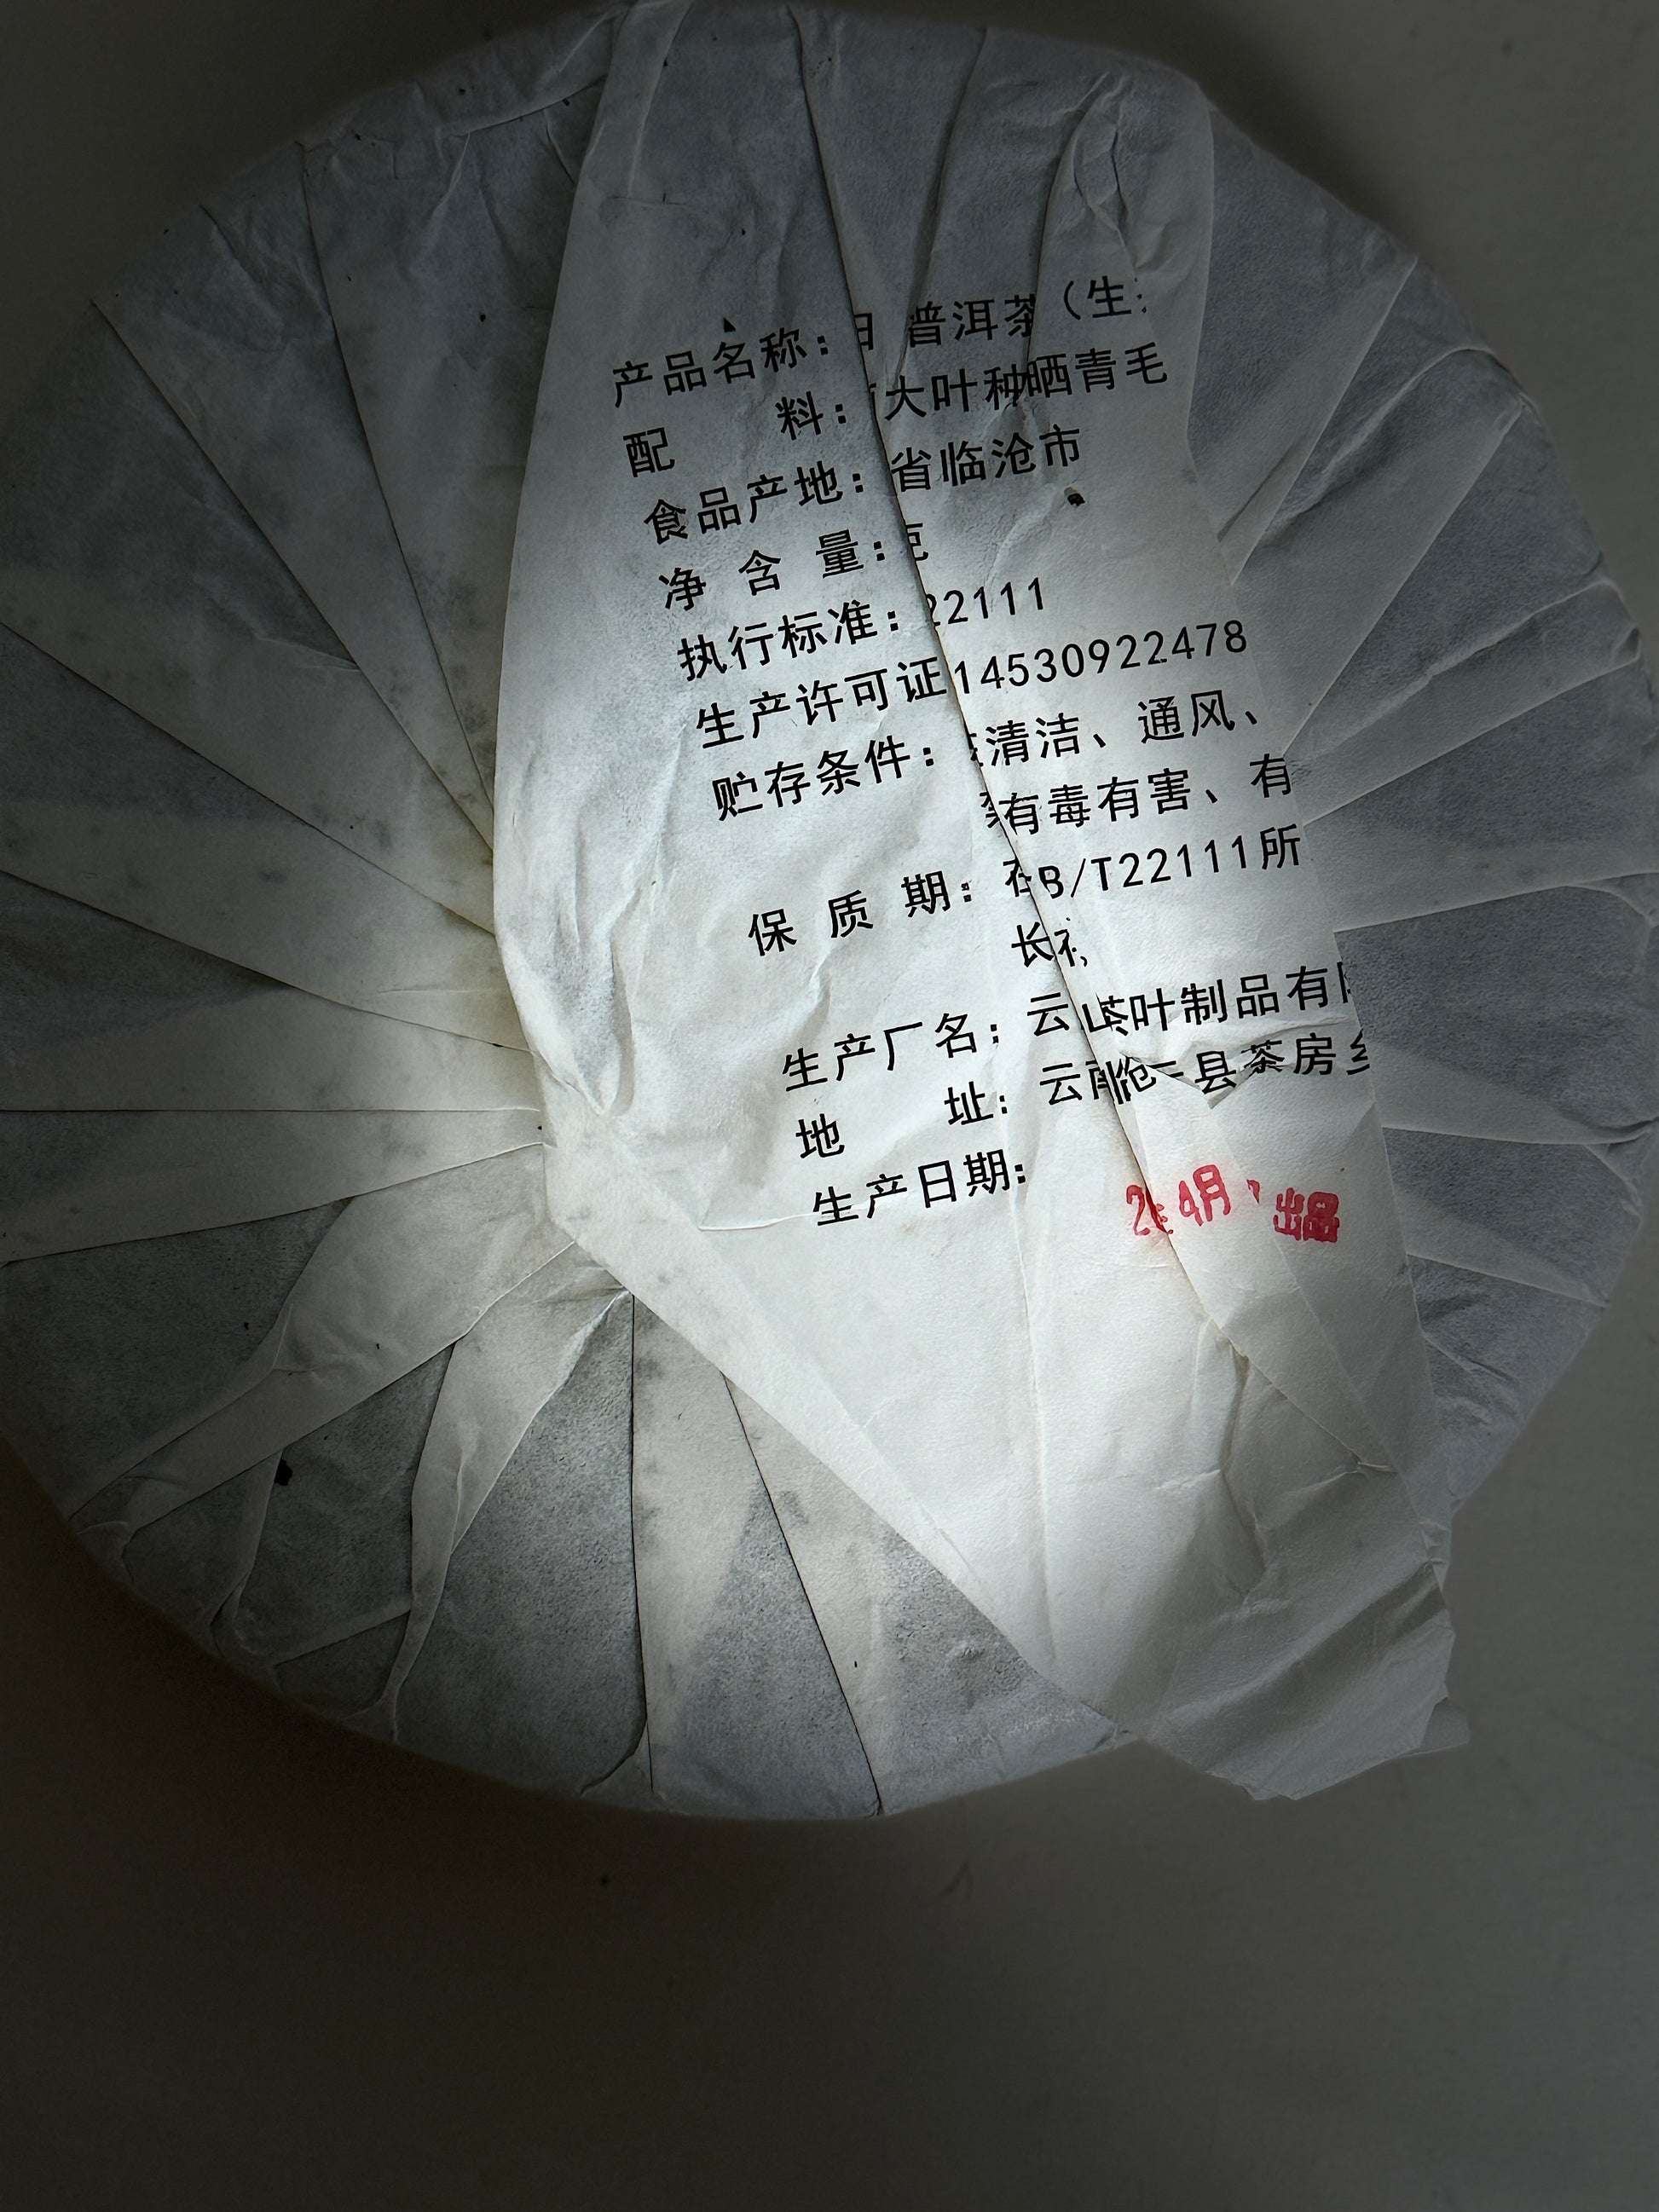 产品名称： 普洱茶（生
配 料： 大叶种晒青毛
食品产地： 省临沧市
净 含 量：
执行标准： 22111
生产许可证 14530922478
贮存条件： 清洁、通风、
有毒有害、有
保 质 期： B/T22111所
长
生产厂名： 云 茶叶制品有
地 址： 云 县茶房
生产日期：
4月 出品